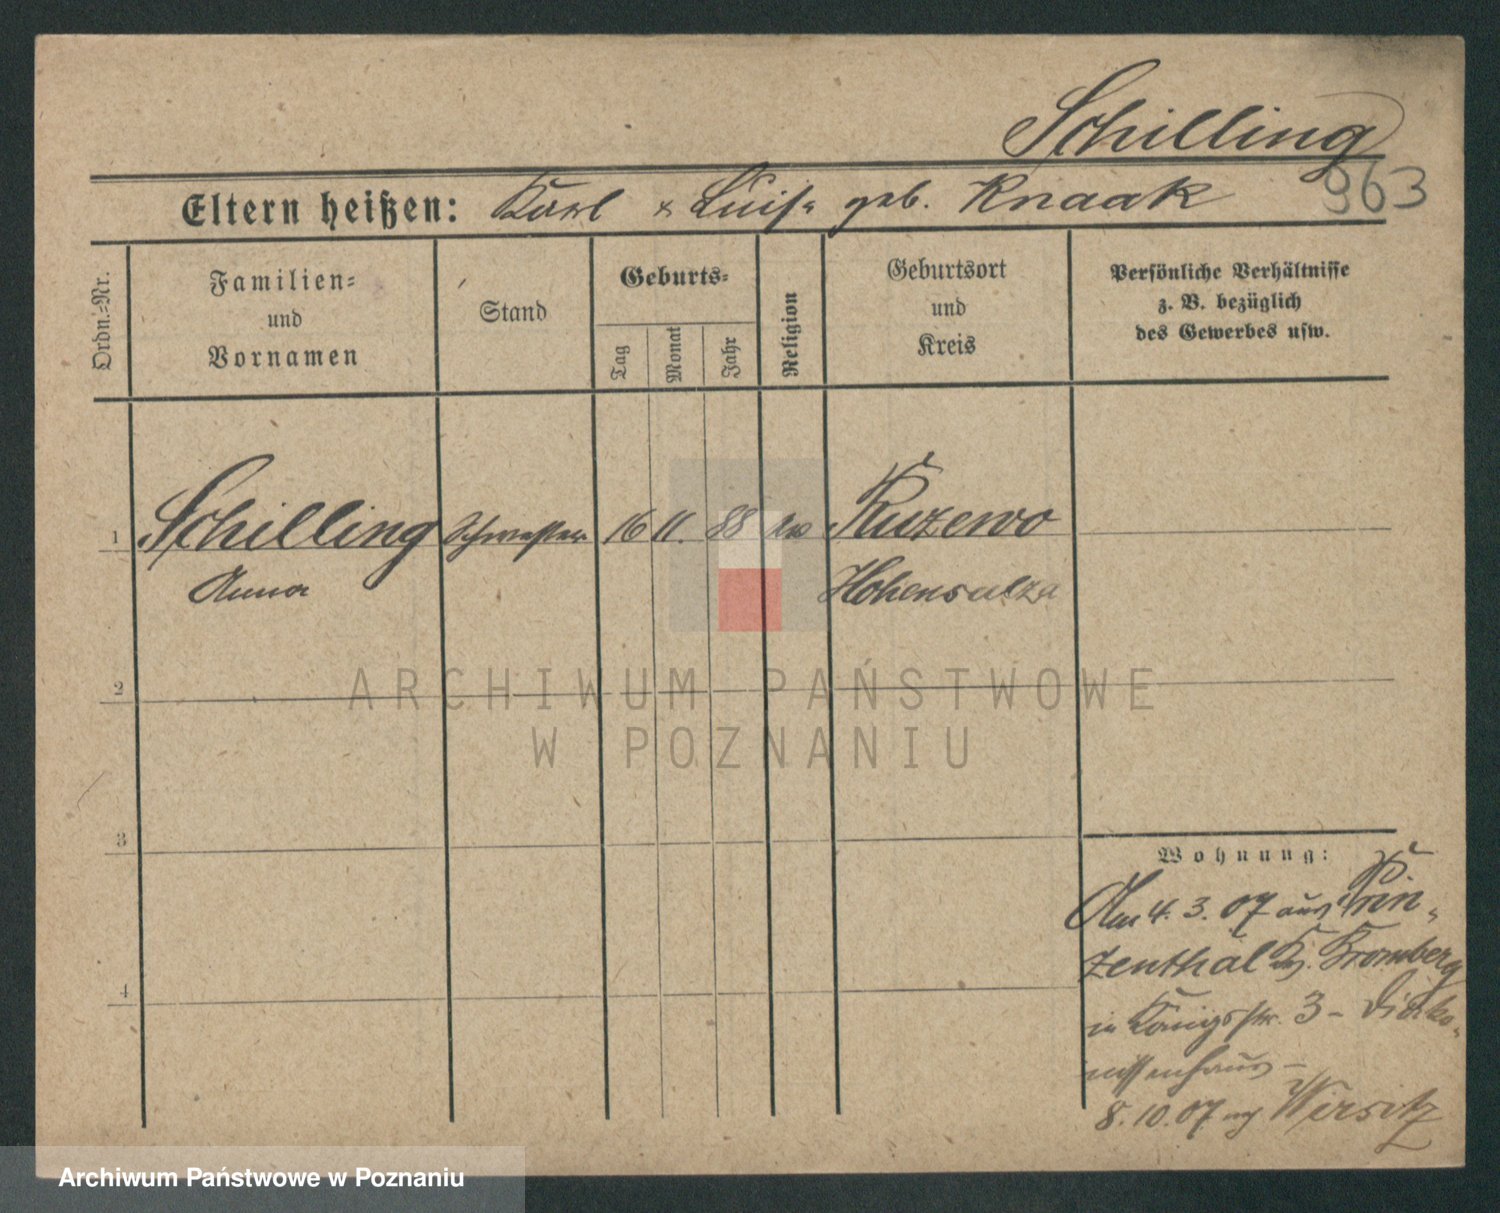 Schilling
963
Eltern heißen: Karl & Luise geb. Knaak
Ordn.-Nr.
Familien-
und
Vornamen
Stand
Geburts-
Tag
Monat
Jahr
Religion
Geburtsort
und
Kreis
Persönliche Verhältnisse
z. B. bezüglich
des Gewerbes usw.
1 Schilling Schwester 16 11. 88 ev Kuzewo
Anna Hohensalza
2
ARCHIWUM PAŃSTWOWE
W POZNANIU
3
Wohnung:
Am 4. 3. 07 aus Prin-
zenthal Kr. Bromberg
in Königsstr. 3 - Diako-
nissenhaus -
4
8. 10. 07 n Wirsitz
Archiwum Państwowe w Poznaniu